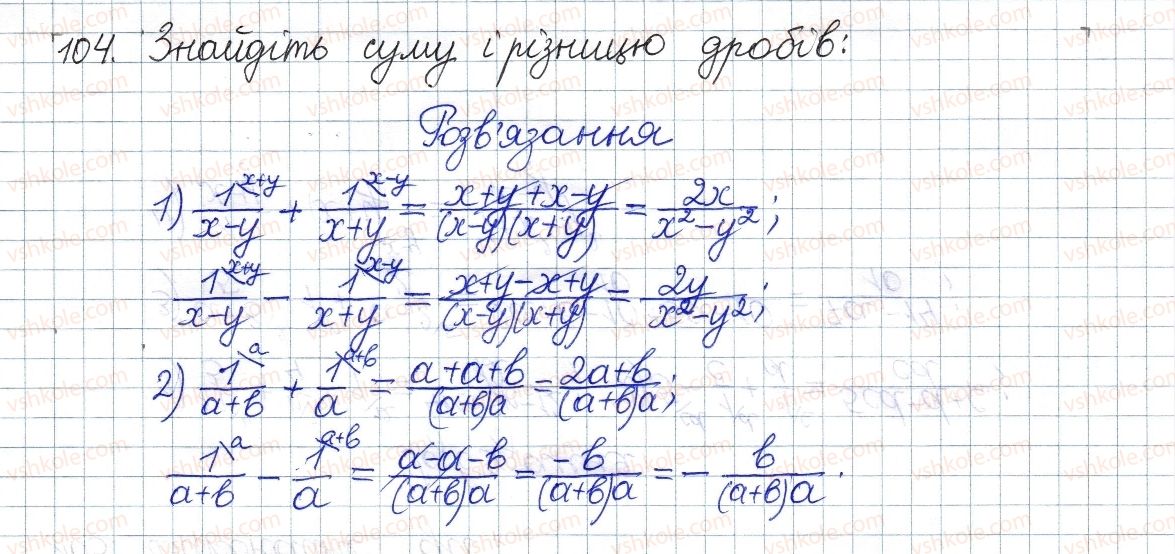 104. Знайдіть суму і різницю дробів:
Розв'язання
1) 1^{x+y}/(x-y) + 1^{x-y}/(x+y) = (x+y+x-y)/((x-y)(x+y)) = 2x/(x²-y²);
1^{x+y}/(x-y) - 1^{x-y}/(x+y) = (x+y-x+y)/((x-y)(x+y)) = 2y/(x²-y²);
2) 1^{a}/(a+b) + 1^{a+b}/a = (a+a+b)/((a+b)a) = (2a+b)/((a+b)a);
1^{a}/(a+b) - 1^{a+b}/a = (a-a-b)/((a+b)a) = -b/((a+b)a) = - b/((a+b)a).
vshkole.com